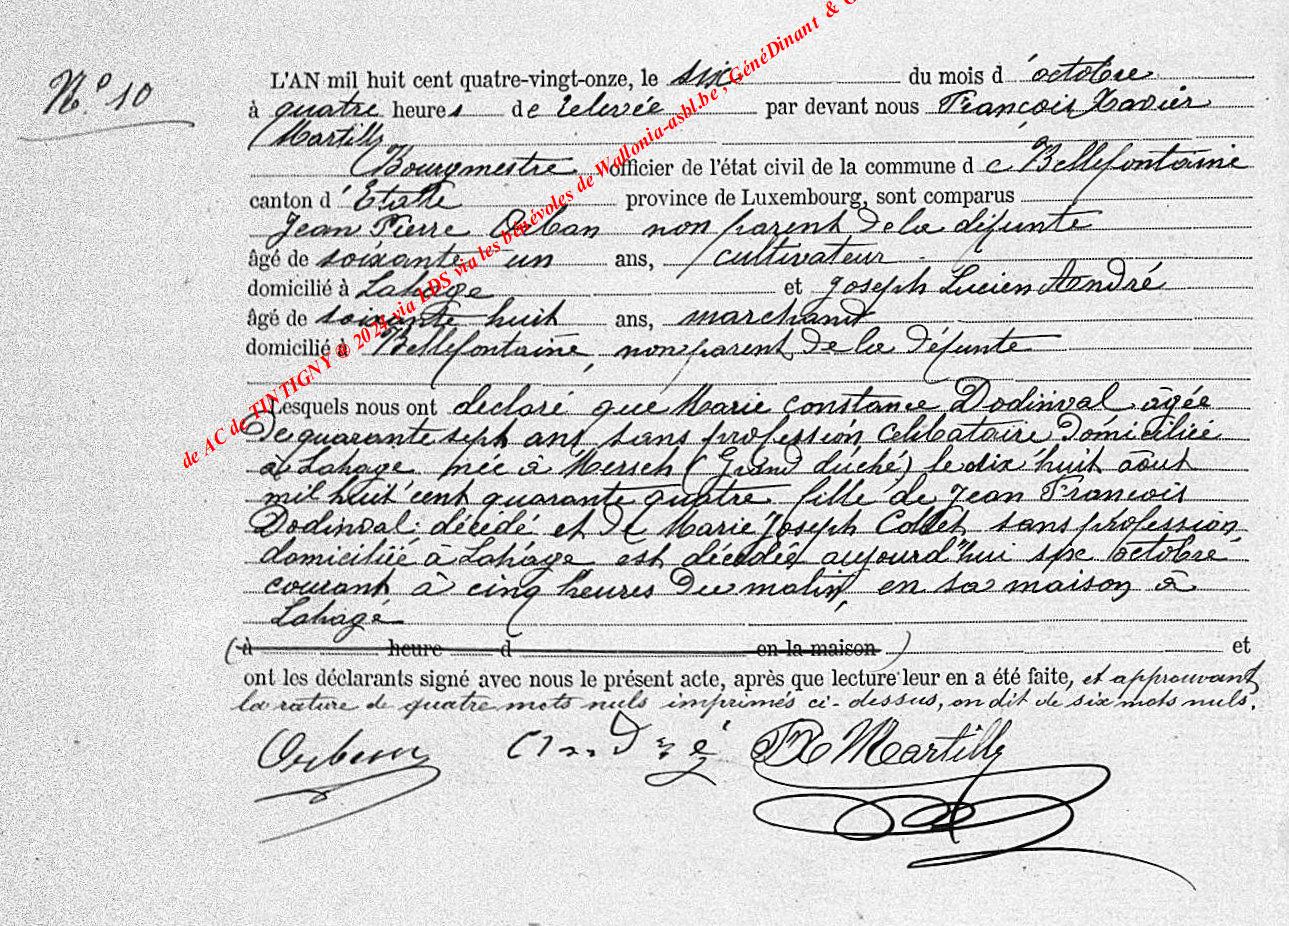 N.º 10
L'AN mil huit cent quatre-vingt-onze, le six du mois d'octobre
à quatre heures de relevée par devant nous François Xavier
Martilly
Bourgmestre officier de l'état civil de la commune de Bellefontaine
canton d'Etalle province de Luxembourg, sont comparus
Jean Pierre Orban non parent de la défunte
âgé de soixante un ans, cultivateur
domicilié à Lahage et Joseph Lucien André
âgé de soixante huit ans, marchand
domicilié à Bellefontaine, non parent de la défunte
Lesquels nous ont declaré que Marie Constance Dodinval âgée
de quarante sept ans sans profession célibataire domiciliée
à Lahage née à Mersch (Grand duché) le dix huit août
mil huit cent quarante quatre fille de Jean François
Dodinval décédé et de Marie Joseph Collet sans profession
domiciliée à Lahage est décédée aujourd'hui six octobre
courant à cinq heures du matin, en sa maison à
Lahage
(à heure d en la maison) et
ont les déclarants signé avec nous le présent acte, après que lecture leur en a été faite, et approuvant
la rature de quatre mots nuls imprimés ci-dessus, on dit de six mots nuls.
Orban André FX Martilly
de AC de TINTIGNY @ 2024 via LDS via les bénévoles de Wallonia-asbl.be, GénéDinant &